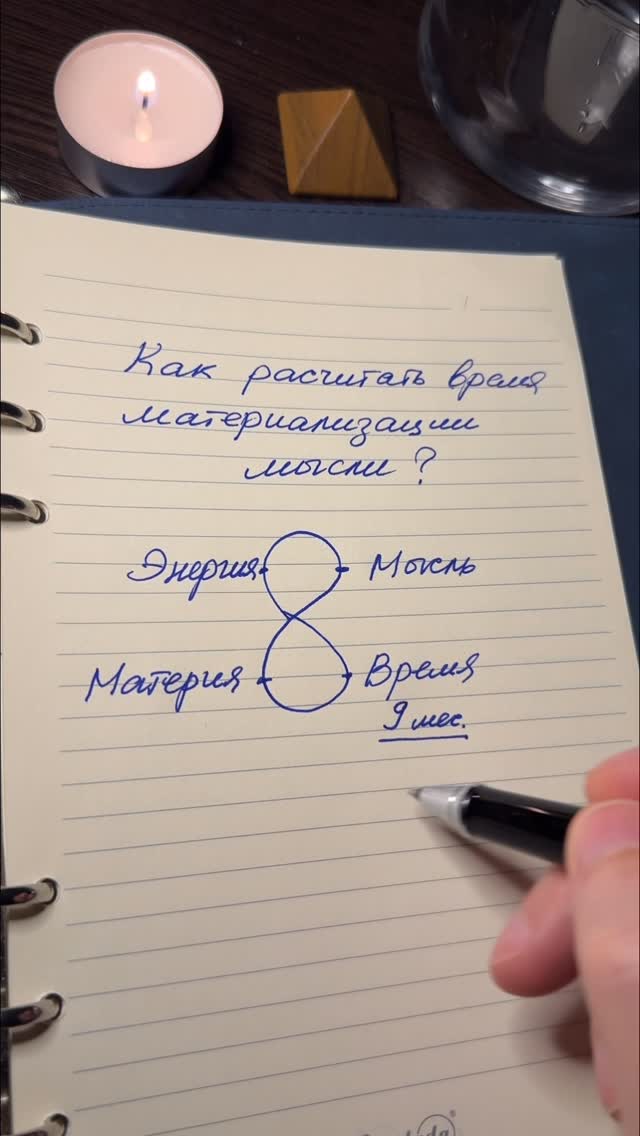 Как расчитать время
материализации
мысли?
Энергия Мысль
Материя Время
9 мес.